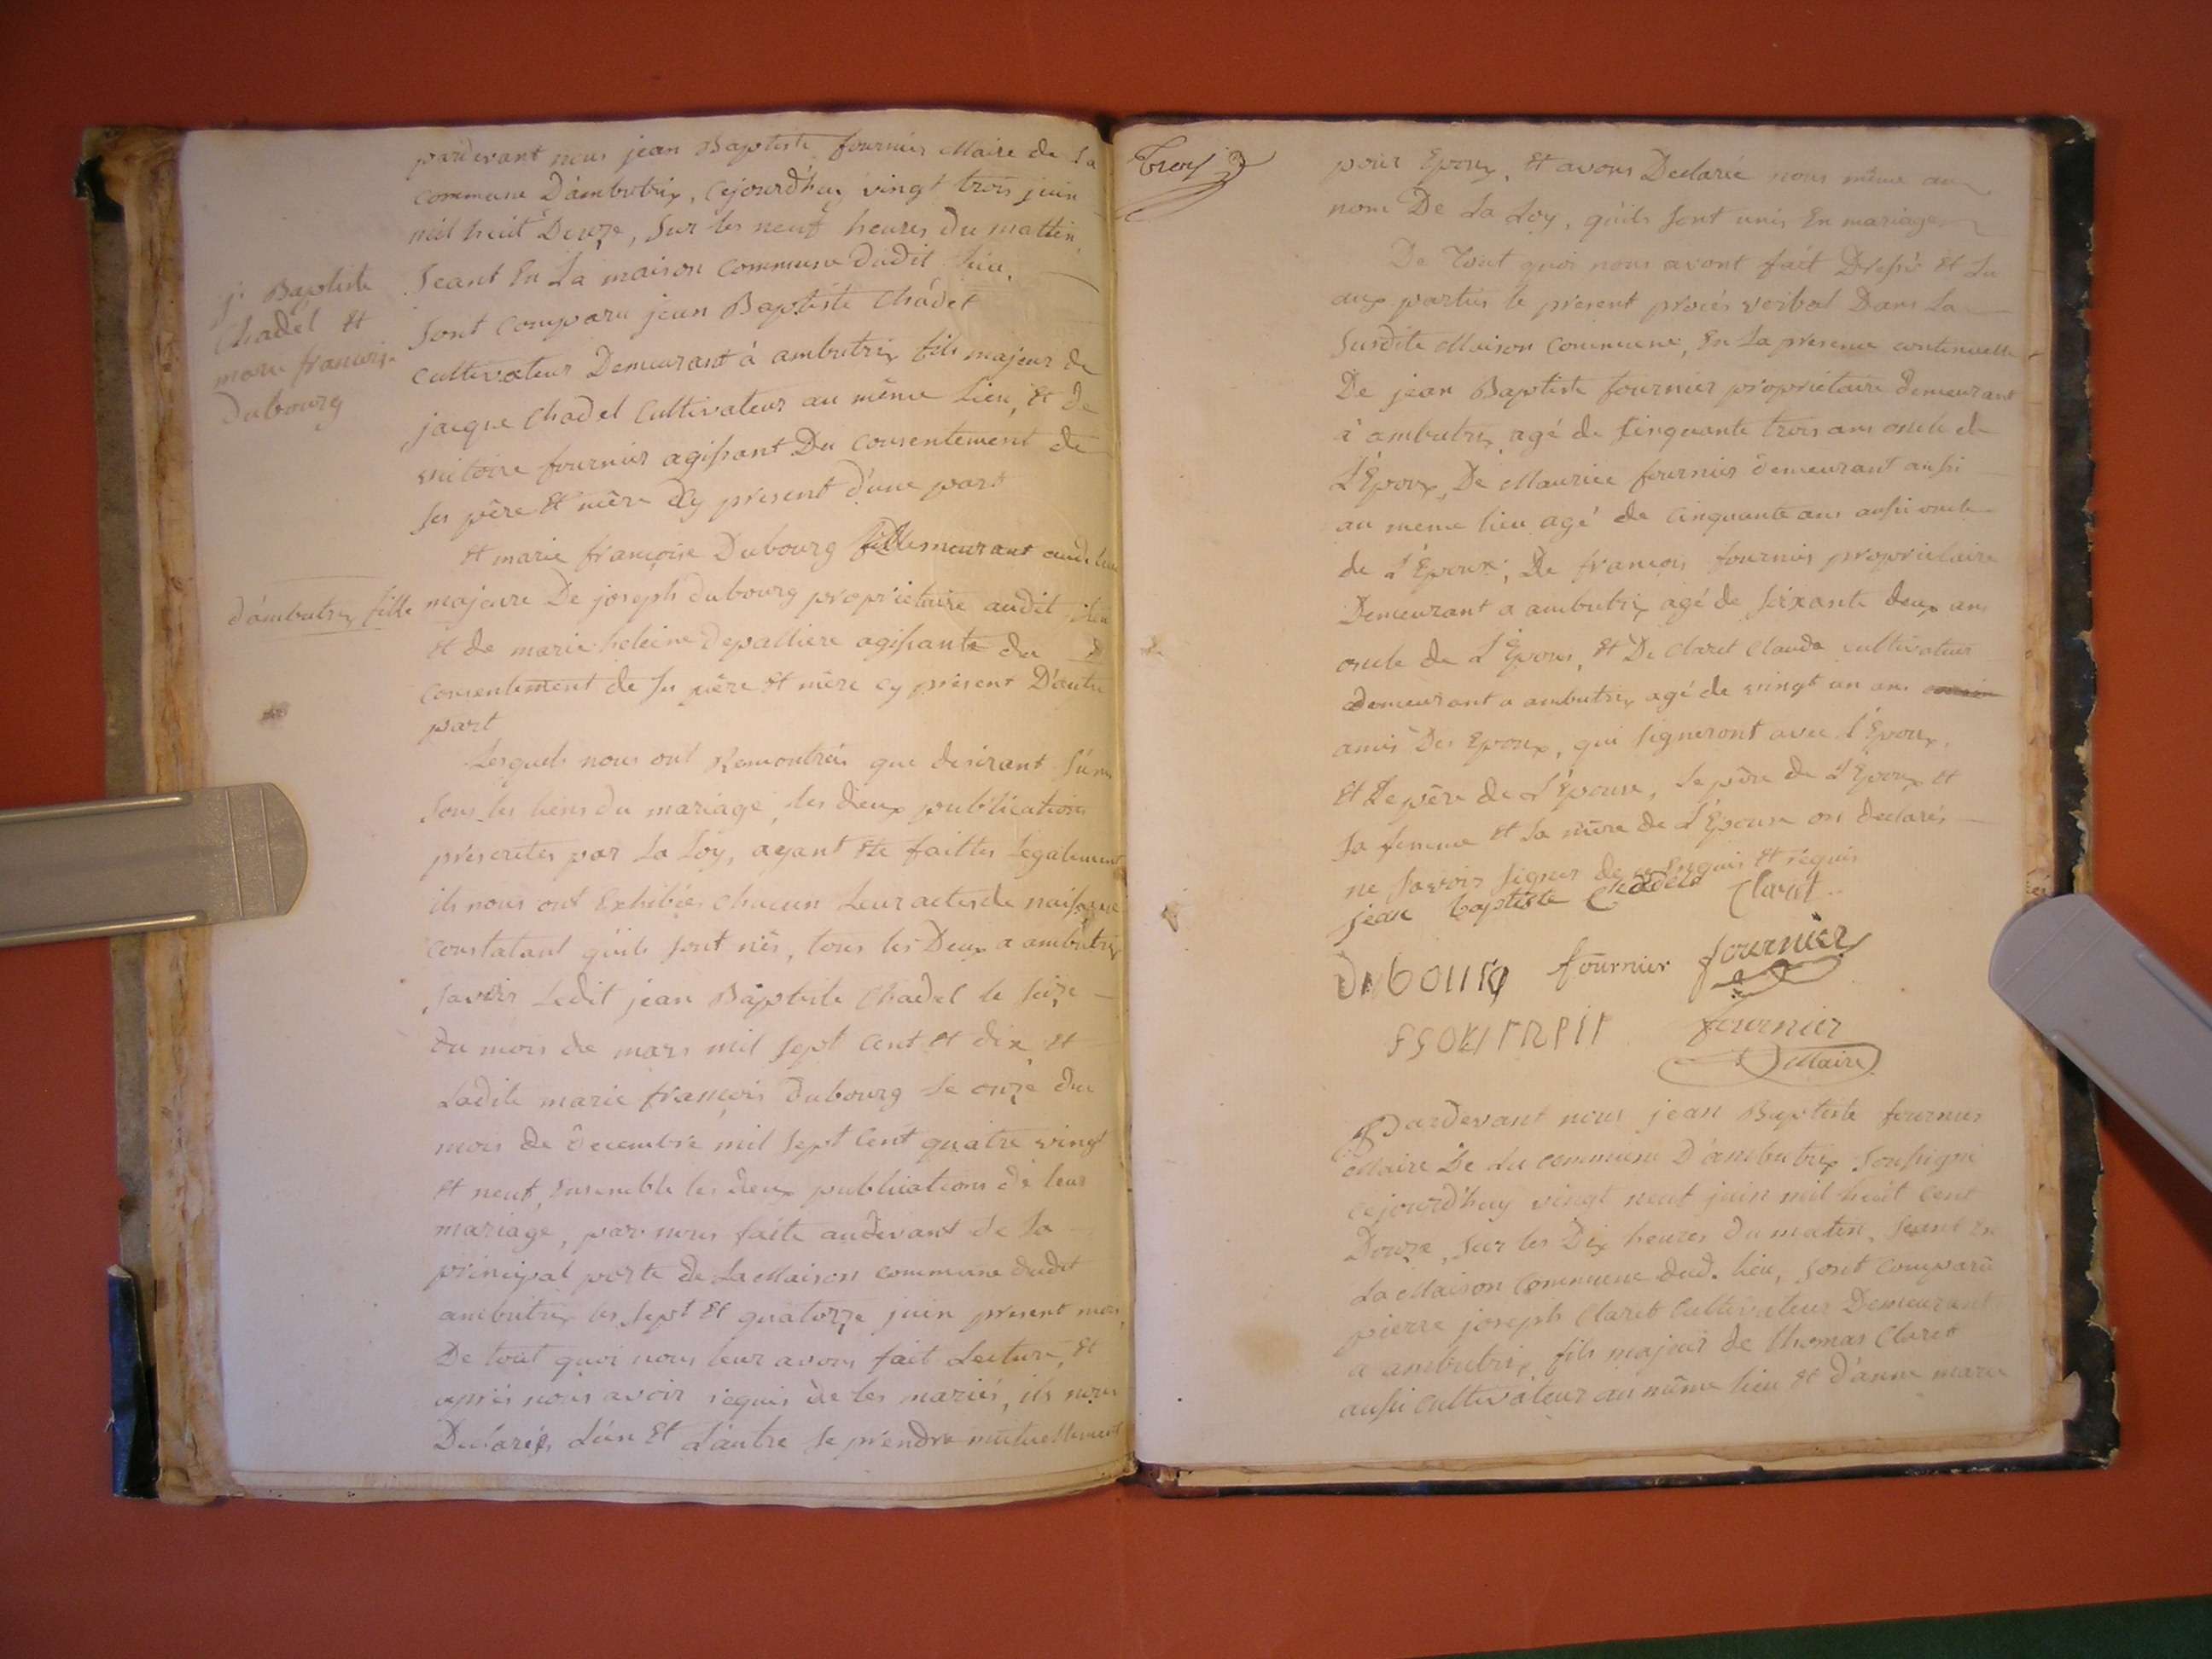 pardevant nous jean Baptiste fournier Maire de La
commune D'ambutrix, cejourd'huy vingt trois juin
mil huit Douze, Sur les neuf heures du mattin,
Seant En La maison Commune dudit lieu,
j. Baptiste
Chadel Et
marie francoise
Dubourg
Sont Comparu jean Baptiste Chadel
cultivateur Demeurant à ambutrix fils majeur de
jacque Chadel Cultivateur au même Lieu, Et de
victoire fournier agissant Du consentement de
ses père Et mère Cy present d'une part
Et marie françoise Dubourg demeurant aud. lieu
d'ambutrix fille
majeure De joseph dubourg propriétaire audit lieu
Et de marie heleine Depalliere agissante du
consentement de ses père Et mère cy present D'autre
part
Lesquels nous ont Remontrés que desirant s'unir
Sous les liens du mariage, les deux publications
prescrites par La Loy, ayant été faittes Legalement
ils nous ont Exhibées chacun Leur actes de naissance
constatant quils sont nés, tous les Deux a ambutrix
Savoir Ledit jean Baptiste Chadel le seize
du mois de mars mil sept Cent Et dix, Et
Ladite marie françois Dubourg Le onze du
mois de Decembre mil sept Cent quatre vingt
Et neuf, Ensemble les deux publications de leur
mariage, par nous faite audevant de la
principal porte de La Maison commune dudit
ambutrix les sept Et quatorze juin present mois,
De tout quoi nous leur avons fait Lecture, Et
aprés nous avoir requis de les mariés, ils nous
Declarés L'un Et L'autre se prendre mutuellement
pour Epoux, Et avons Declarée nous même au
nom De La Loy, quils sont unis En mariage
De Tout quoi nous avont fait Dressé Et Lu
aux parties le present procés verbal Dans La
Susdite Maison Commune, En La presence continuelle
De jean Baptiste fournier propriétaire demeurant
à ambutrix agé de Cinquante trois ans oncle de
L'Epoux, De Maurice fournier demeurant aussi
au meme lieu agé de Cinquante ans aussi oncle
de L'Epoux, De françois fournier propriétaire
Demeurant a ambutrix agé de soixante deux ans
oncle de L'Epoux, Et De Claret Claude cultivateur
demeurant a ambutrix agé de vingt un ans
amis Des Epoux, qui signeront avec l'Epoux,
Et Le père de L'Epouse, Le père de L'Epoux Et
Sa femme Et la mère de L'Epouse on declarés
ne savoir signer de ce Enquis Et réquis
jean baptiste Chadel Claret
Dubourg fournier fournier
fournier
Maire
Pardevant nous jean Baptiste fournier
Maire De La commune D'ambutrix Soussigné
cejourd'huy vingt neuf juin mil huit Cent
Douze, sur les Dix heures du matin, seant En
La Maison Commune dud. lieu, sont comparu
pierre joseph Claret Cultivateur Demeurant
a ambutrix fils majeur de thomas Claret
aussi Cultivateur au même lieu Et d'anne marie